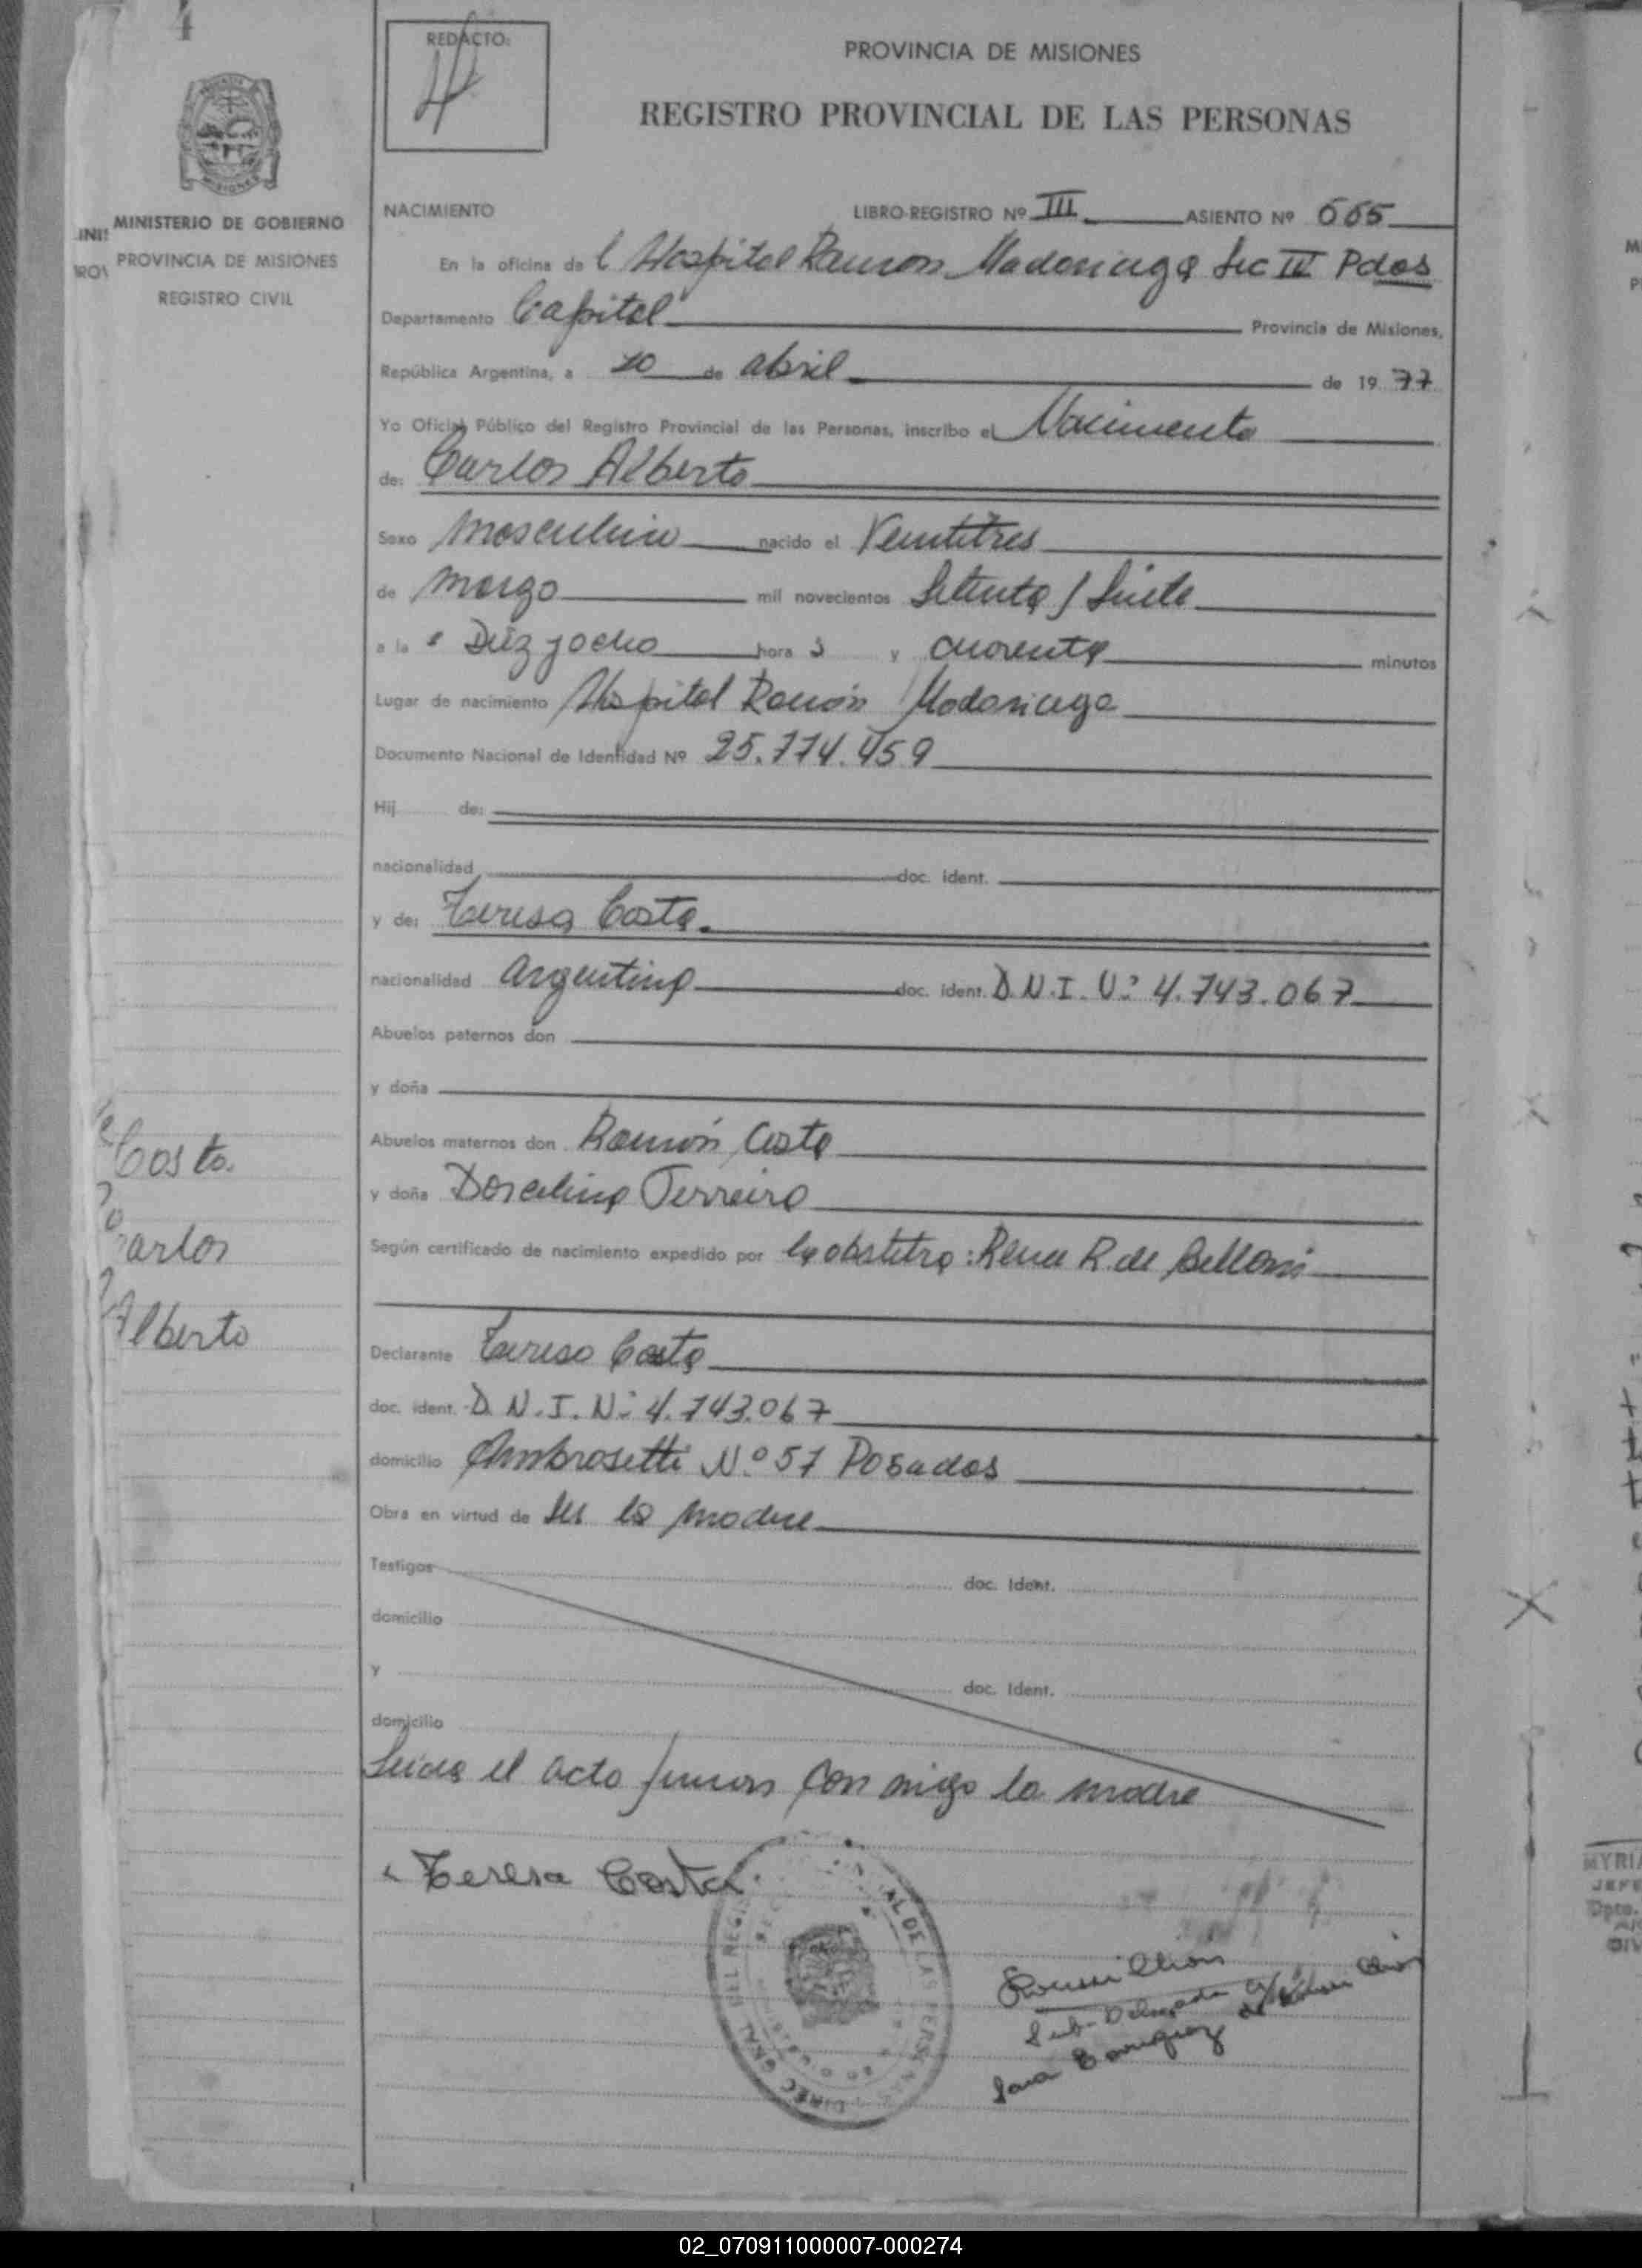 4
REDACTO:
PROVINCIA DE MISIONES
REGISTRO PROVINCIAL DE LAS PERSONAS
MINISTERIO DE GOBIERNO
PROVINCIA DE MISIONES
REGISTRO CIVIL
NACIMIENTO LIBRO-REGISTRO Nº III ASIENTO Nº 665
En la oficina de l Hospital Ramon Madariaga Sec III Pdas
Departamento Capital Provincia de Misiones,
República Argentina, a 20 de abril de 19 77
Yo Oficial Público del Registro Provincial de las Personas, inscribo el Nacimiento
de: Carlos Alberto
Sexo Masculino nacido el Veintitres
de Marzo mil novecientos Setenta y Siete
a la s Diez y ocho hora s y cuarenta minutos
Lugar de nacimiento Hospital Ramón Madariaga
Documento Nacional de Identidad Nº 25.774.459
Hij de:
nacionalidad doc. ident.
y de: Teresa Costa.
nacionalidad argentina doc. ident. D.N.I. Nº 4.743.067
Abuelos paternos don
y doña
Abuelos maternos don Ramón Costa
y doña Dorcelina Ferreira
Según certificado de nacimiento expedido por la obstetra: Rena R. de Belloni
Declarante Teresa Costa
doc. ident. D.N.I. Nº 4.743.067
domicilio Ambrosetti Nº 57 Posadas
Obra en virtud de ser la madre
Testigos doc. Ident.
domicilio
y doc. Ident.
domicilio
el acto firman con migo la madre
Teresa Costa
Costa.
Carlos
Alberto
Sub-Delegada
Sara
02_070911000007-000274